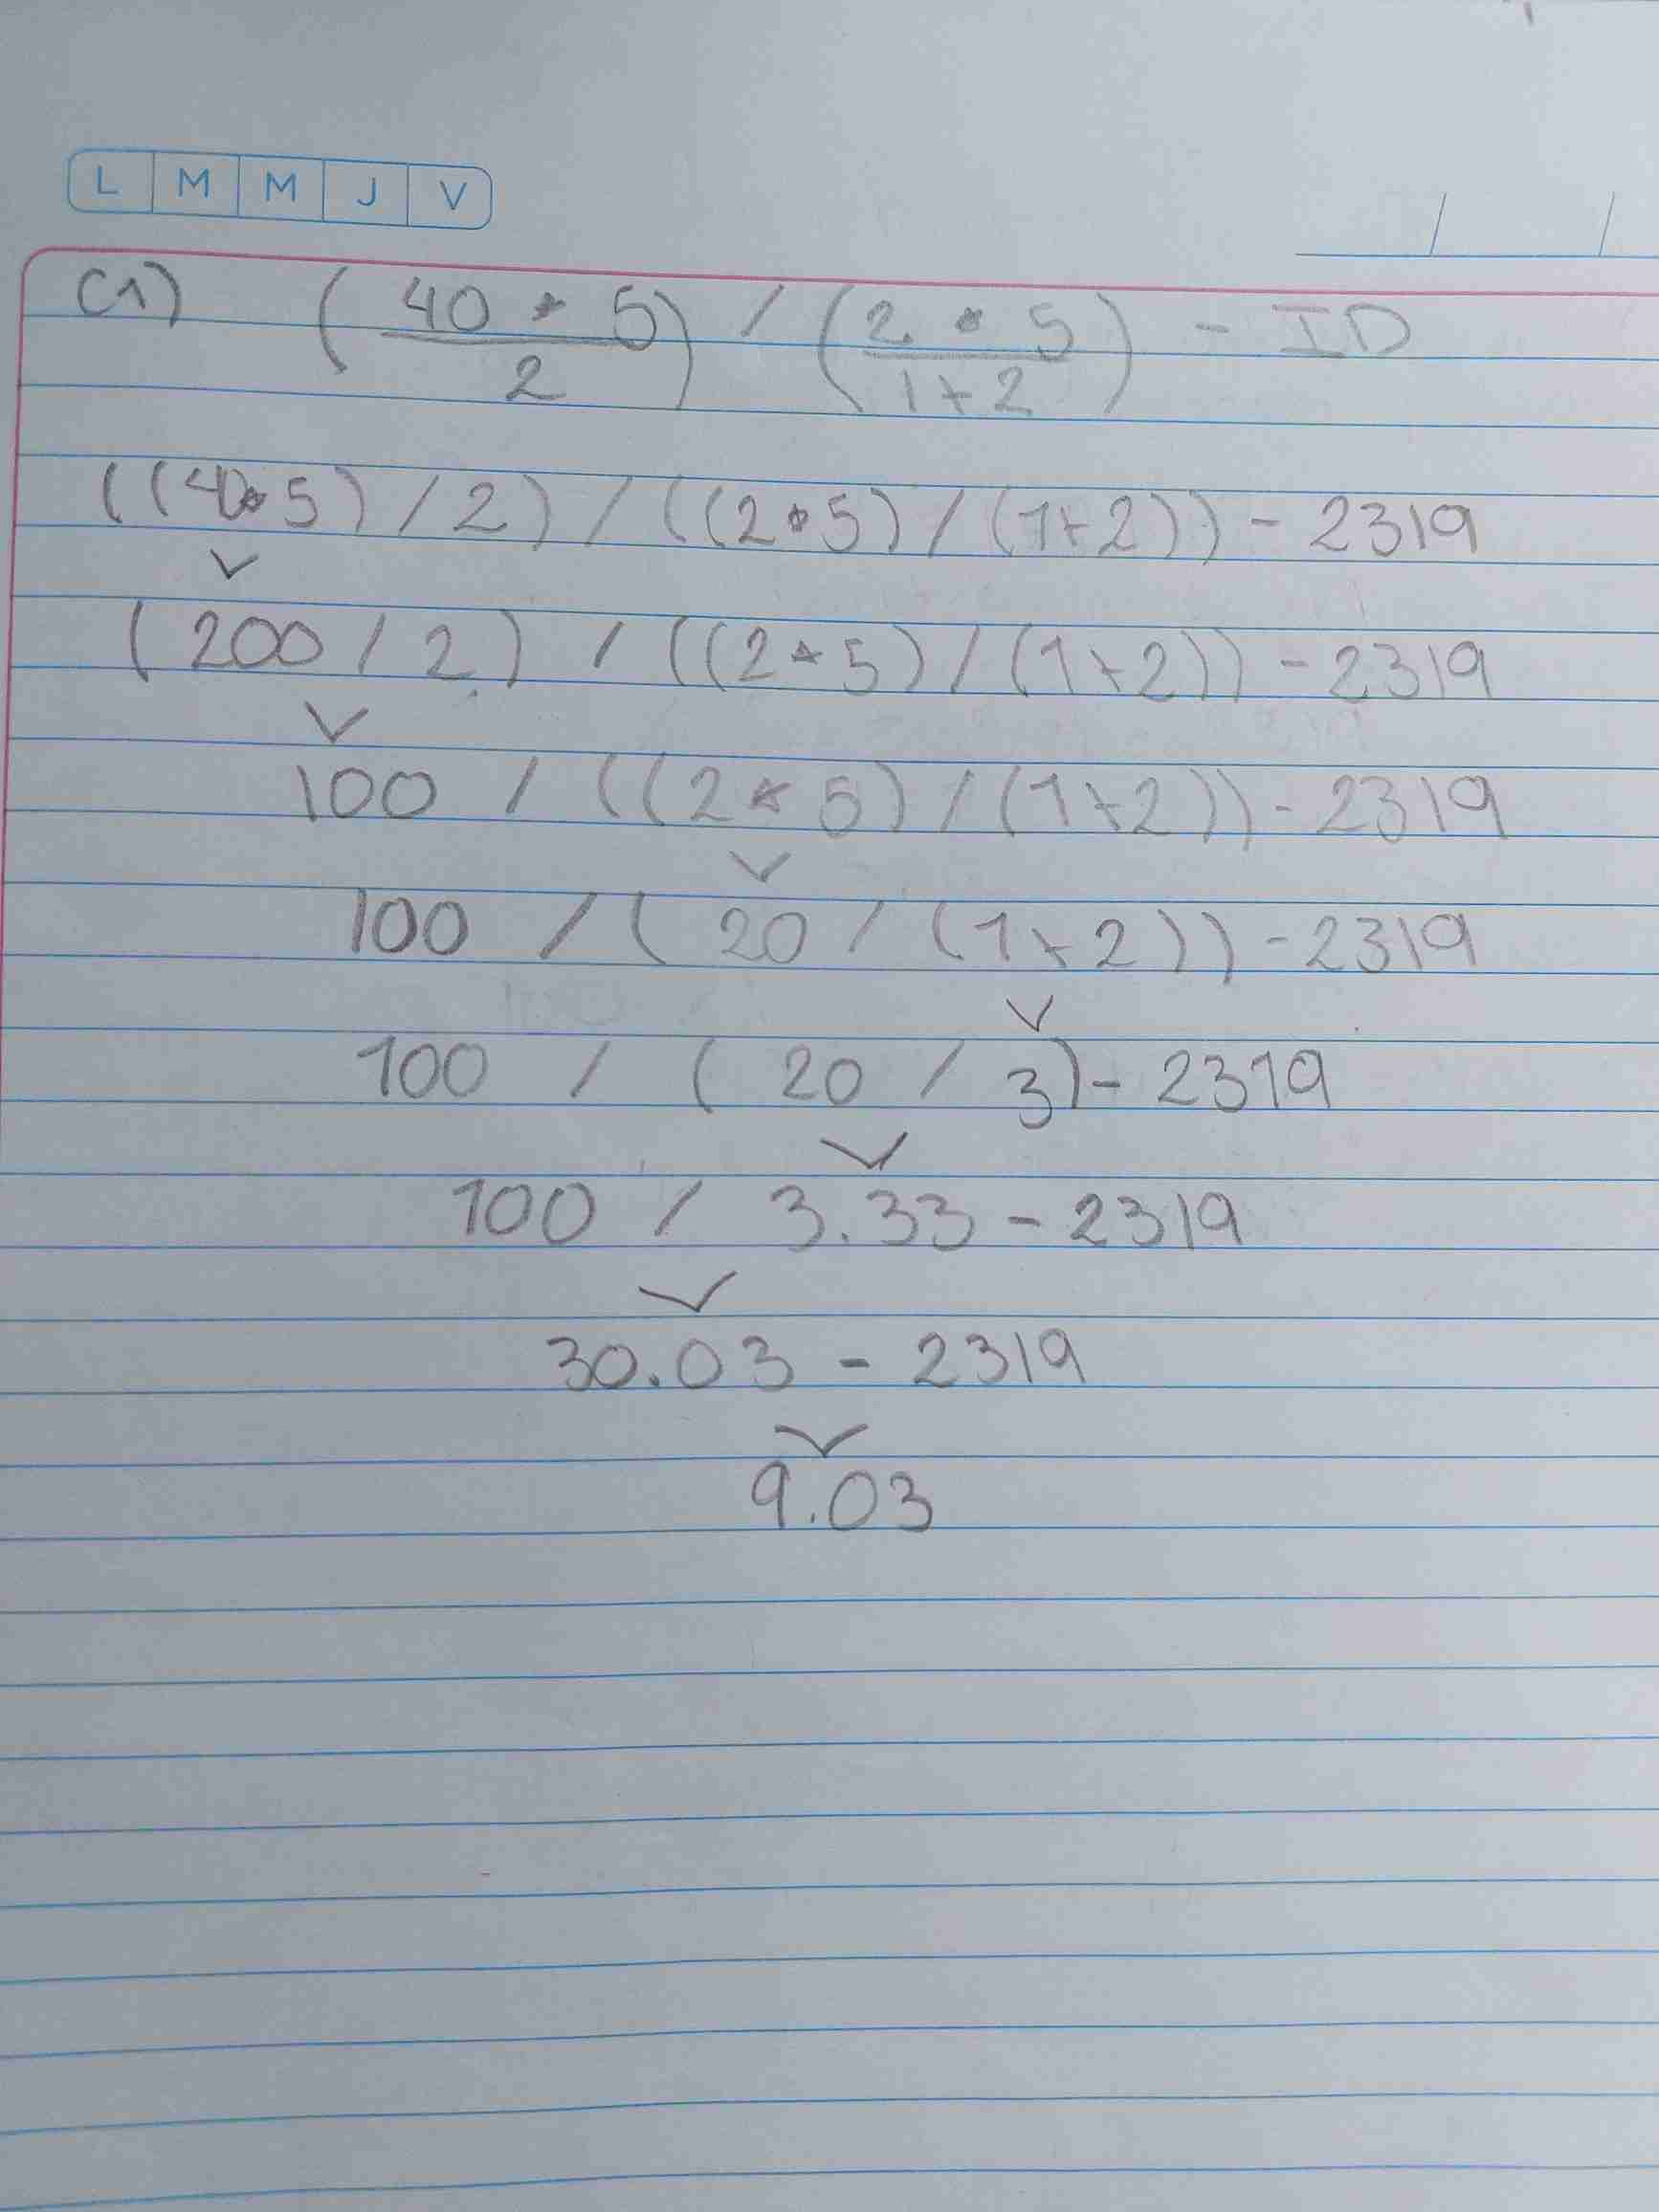 L M M J V
C1) (40 * 5 / 2) / (2 * 5 / 1+2) - ID
((40*5) / 2) / ((2*5) / (1+2)) - 2319
(200 / 2) / ((2*5) / (1+2)) - 2319
100 / ((2*5) / (1+2)) - 2319
100 / (20 / (1+2)) - 2319
100 / (20 / 3) - 2319
100 / 3.33 - 2319
30.03 - 2319
9.03